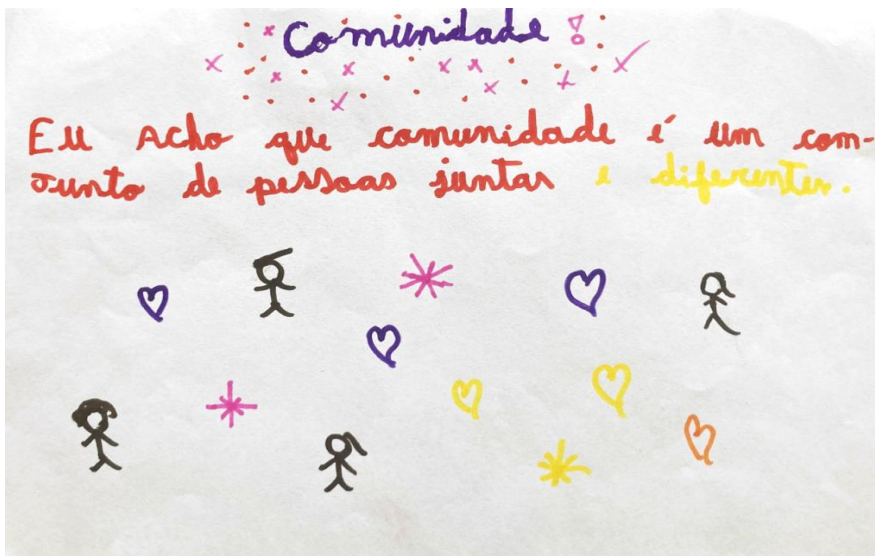 Comunidade!
Eu Acho que comunidade é um com-
junto de pessoas juntas e diferentes.